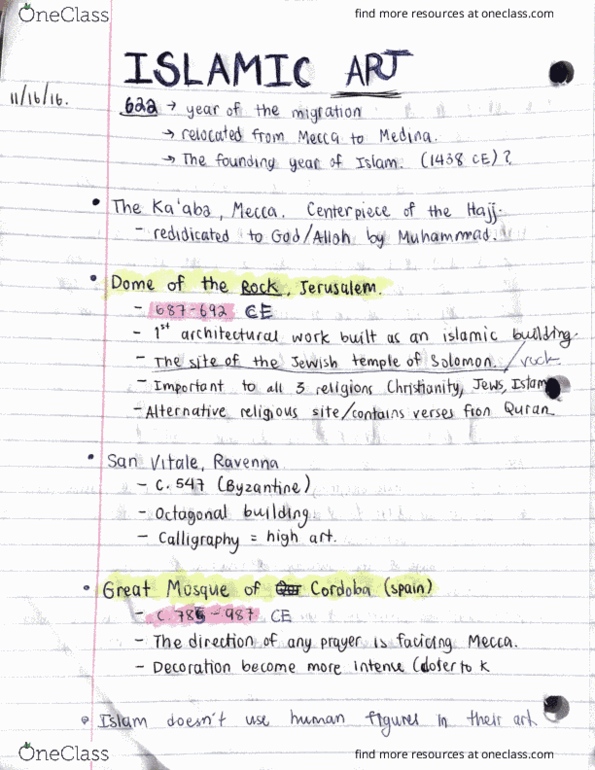 OneClass
find more resources at oneclass.com
ISLAMIC ART
11/16/16.
622 → year of the migration
→ relocated from Mecca to Medina.
→ The founding year of Islam. (1438 CE) ?
• The Ka'aba, Mecca. Centerpiece of the Hajj.
- redidicated to God/Allah by Muhammad.
• Dome of the Rock, Jerusalem.
- 687-692 CE
- 1st architectural work built as an islamic building.
- The site of the Jewish temple of Solomon / rock
- Important to all 3 religions Christianity, Jews, Islam
- Alternative religious site/contains verses from Quran
• San Vitale, Ravenna
- C. 547 (Byzantine)
- Octagonal building
- Calligraphy = high art.
• Great Mosque of Cordoba (spain)
- C. 785 - 987 CE
- The direction of any prayer is facicing Mecca.
- Decoration become more intence (closer to K
• Islam doesn't use human figures in their art
OneClass
find more resources at oneclass.com